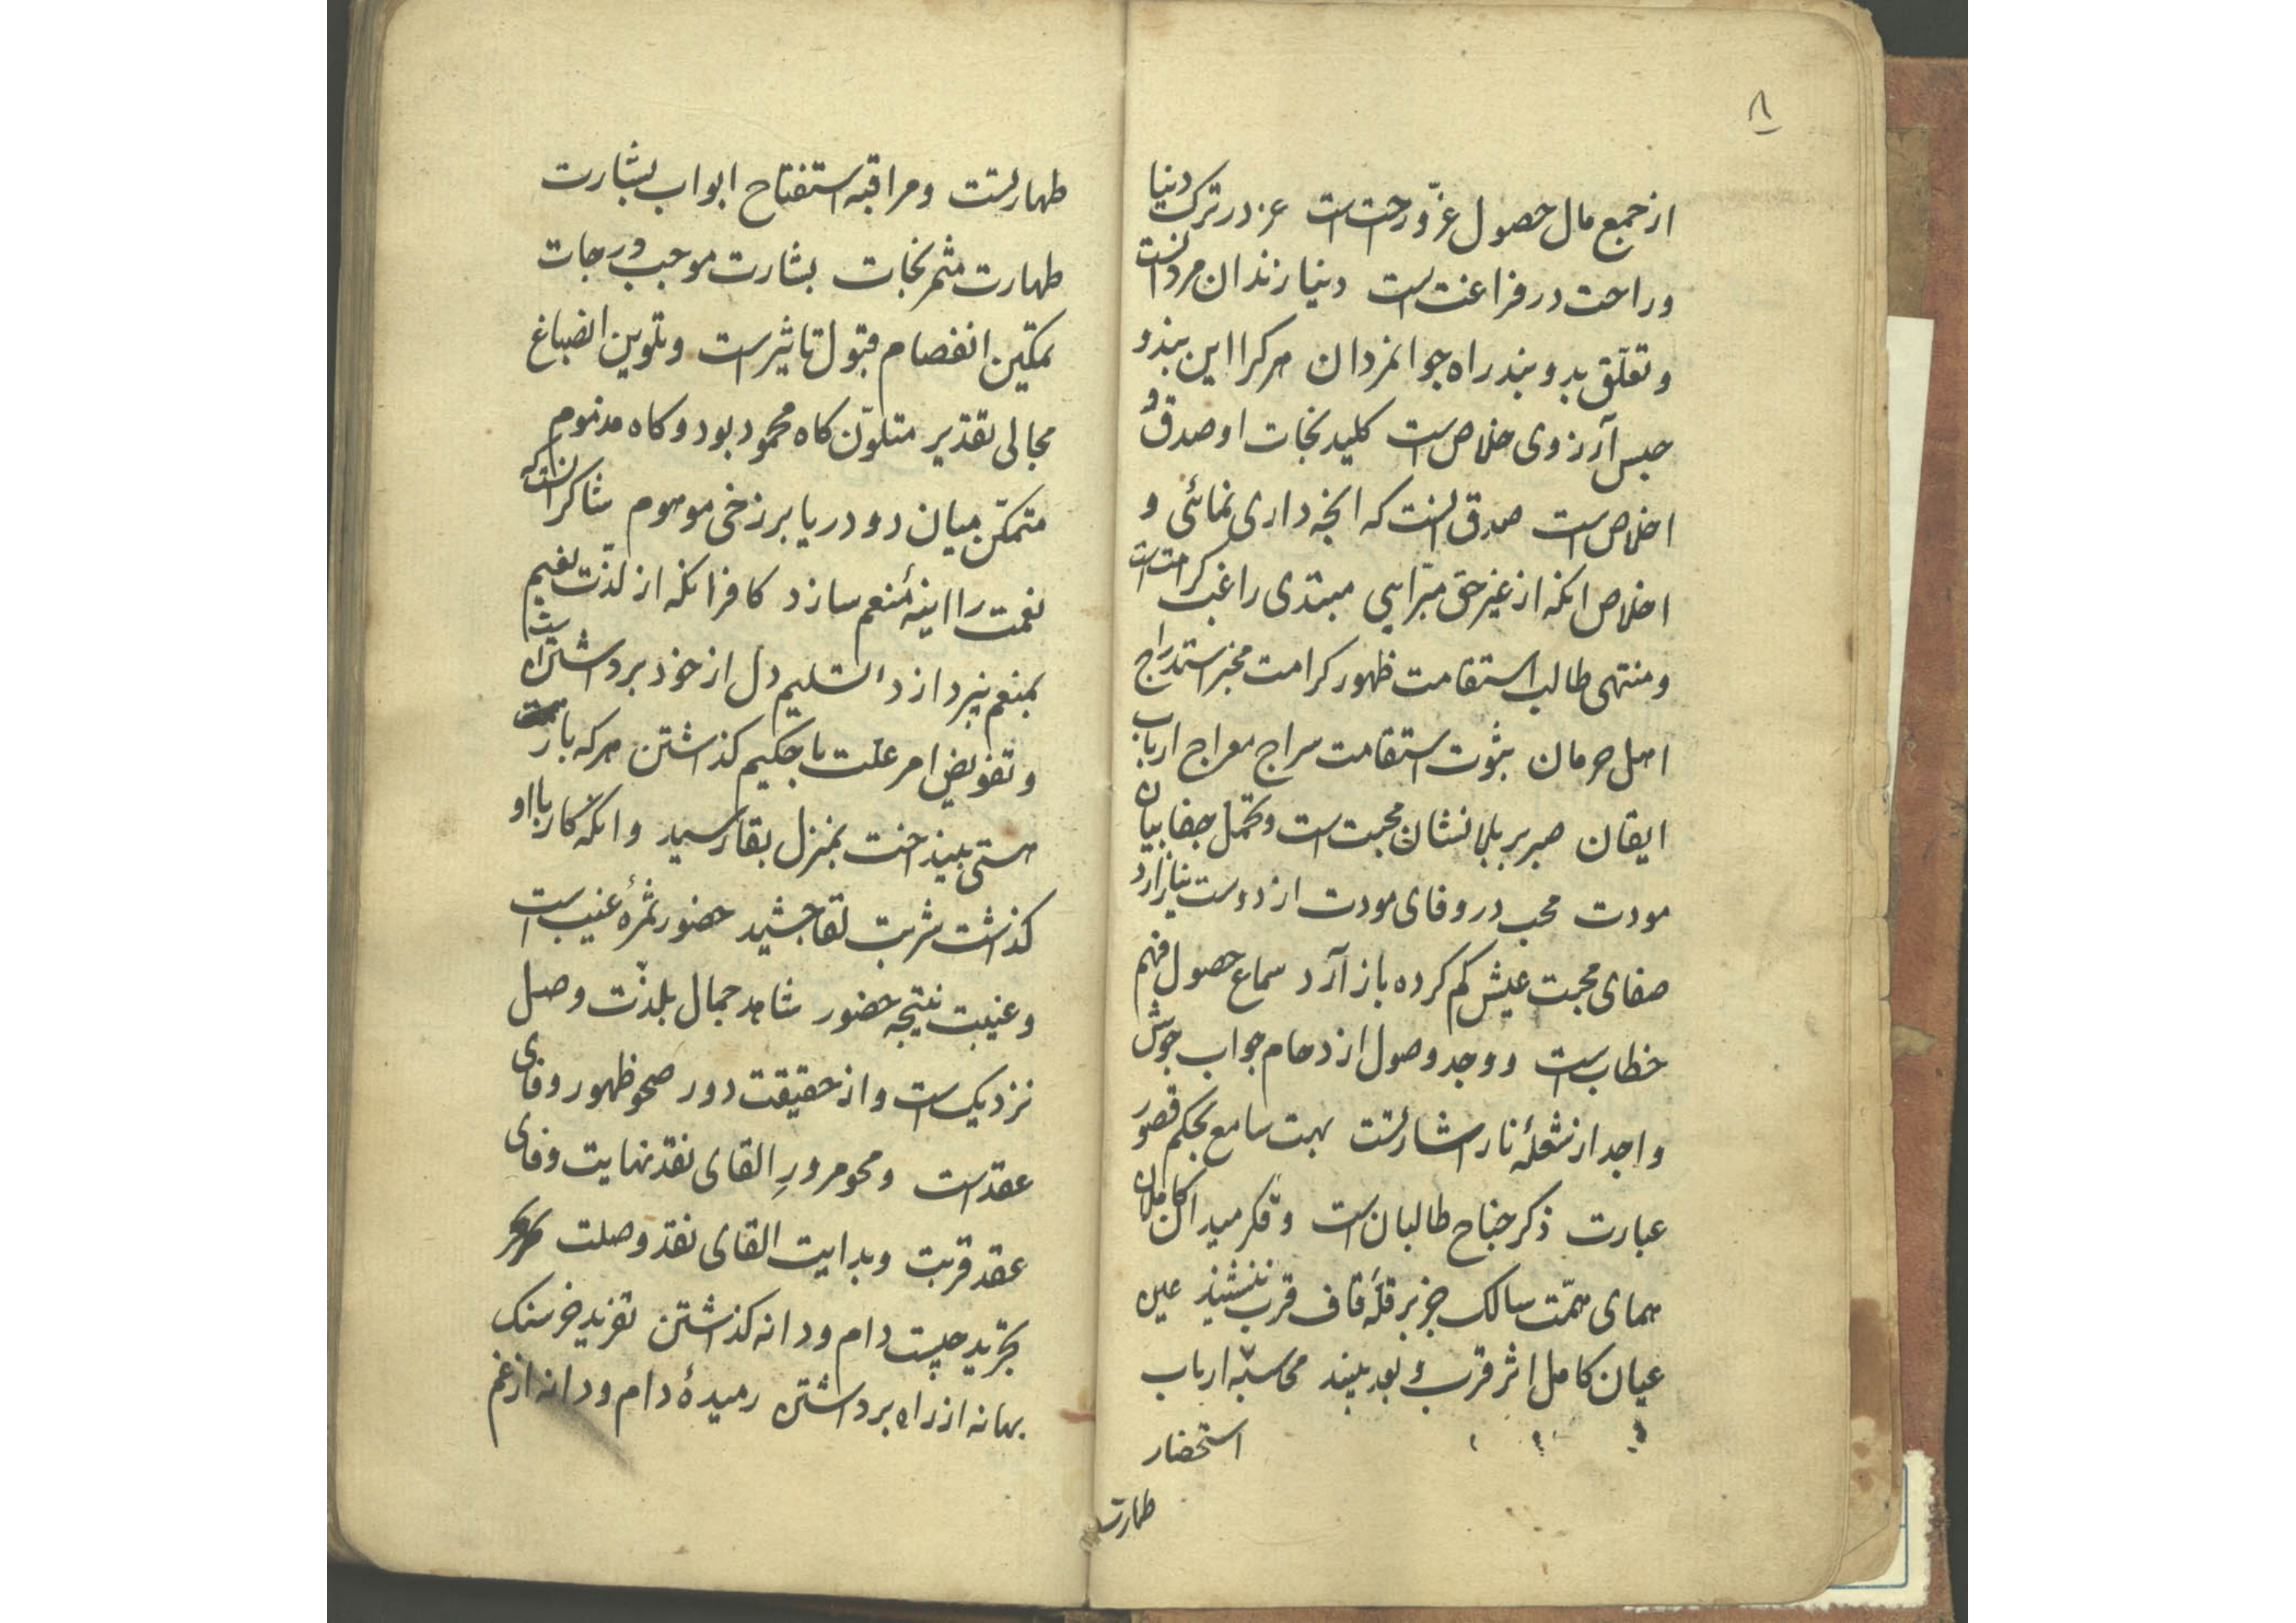 ۸
از جمع مال حصول عزّ و راحت است عز در ترک دنیا
و راحت در فراغت است دنیا زندان مردانست
و تعلّق بد و بند راه جوانمردان هرکرا این بند و
حبس آرزوی خلاص است کلید نجات او صدق و
اخلاص است صدق آنست که آنچه داری نمائی و
اخلاص آنکه از غیر حق مبرّا آیی مبتدی راغب کرامت است
و منتهی طالب استقامت ظهور کرامت مخبر استدراج
اهل حرمان ثبوت استقامت سراج معراج ارباب
ایقان صبر بر بلا نشان محبت است و تحمل جفا بیان
مودت محب در وفای مودت از دوست نیازارد
صفای محبت عیش کم کرده باز آرد سماع حصول فهم
خطاب است و وجد وصول ازدحام جواب جوش
واجد از شعلهٔ نار اشارتست بهت سامع بحکم قصور
عبارت ذکر جناح طالبان است و فکر میدان کاملان
همای همّت سالک جز بر قلهٔ قاف قرب ننشیند عین
عیان کامل اثر قرب و بعد نبیند محاسبه ارباب
استحضار
طهارت
طهارتست و مراقبه استفتاح ابواب بشارت
طهارت مثمر نجات بشارت موجب درجات
تمکین انفصام قبول تاثیر است و تلوین انصباغ
مجالی تقدیر متلوّن کاه محمود بود و کاه مذموم
متمکّن میان دو دریا برزخی موهوم شاکر آنست که
نعمت را اینهٔ منعم سازد کافر آنکه از لذّت نعیم
بمنعم نپردازد تسلیم دل از خود برداشتن است
و تفویض امر علت با حکیم کذاشتن هرکه بار
هستی بینداخت بمنزل بقا رسید و آنکه کار با او
کذاشت شربت لقا چشید حضور ثمرهٔ غیبت است
و غیبت نتیجه حضور شاهد جمال بلذّت وصل
نزدیک است و از حقیقت دور صحو ظهور وفای
عقد است و محو مرورِ القای نقد نهایت وفای
عقد قربت و بدایت القای نقد وصلت
تجرید چیست دام و دانه کذاشتن تفرید خرسنک
بهانه از راه برداشتن رمیدهٔ دام و دانه از غم